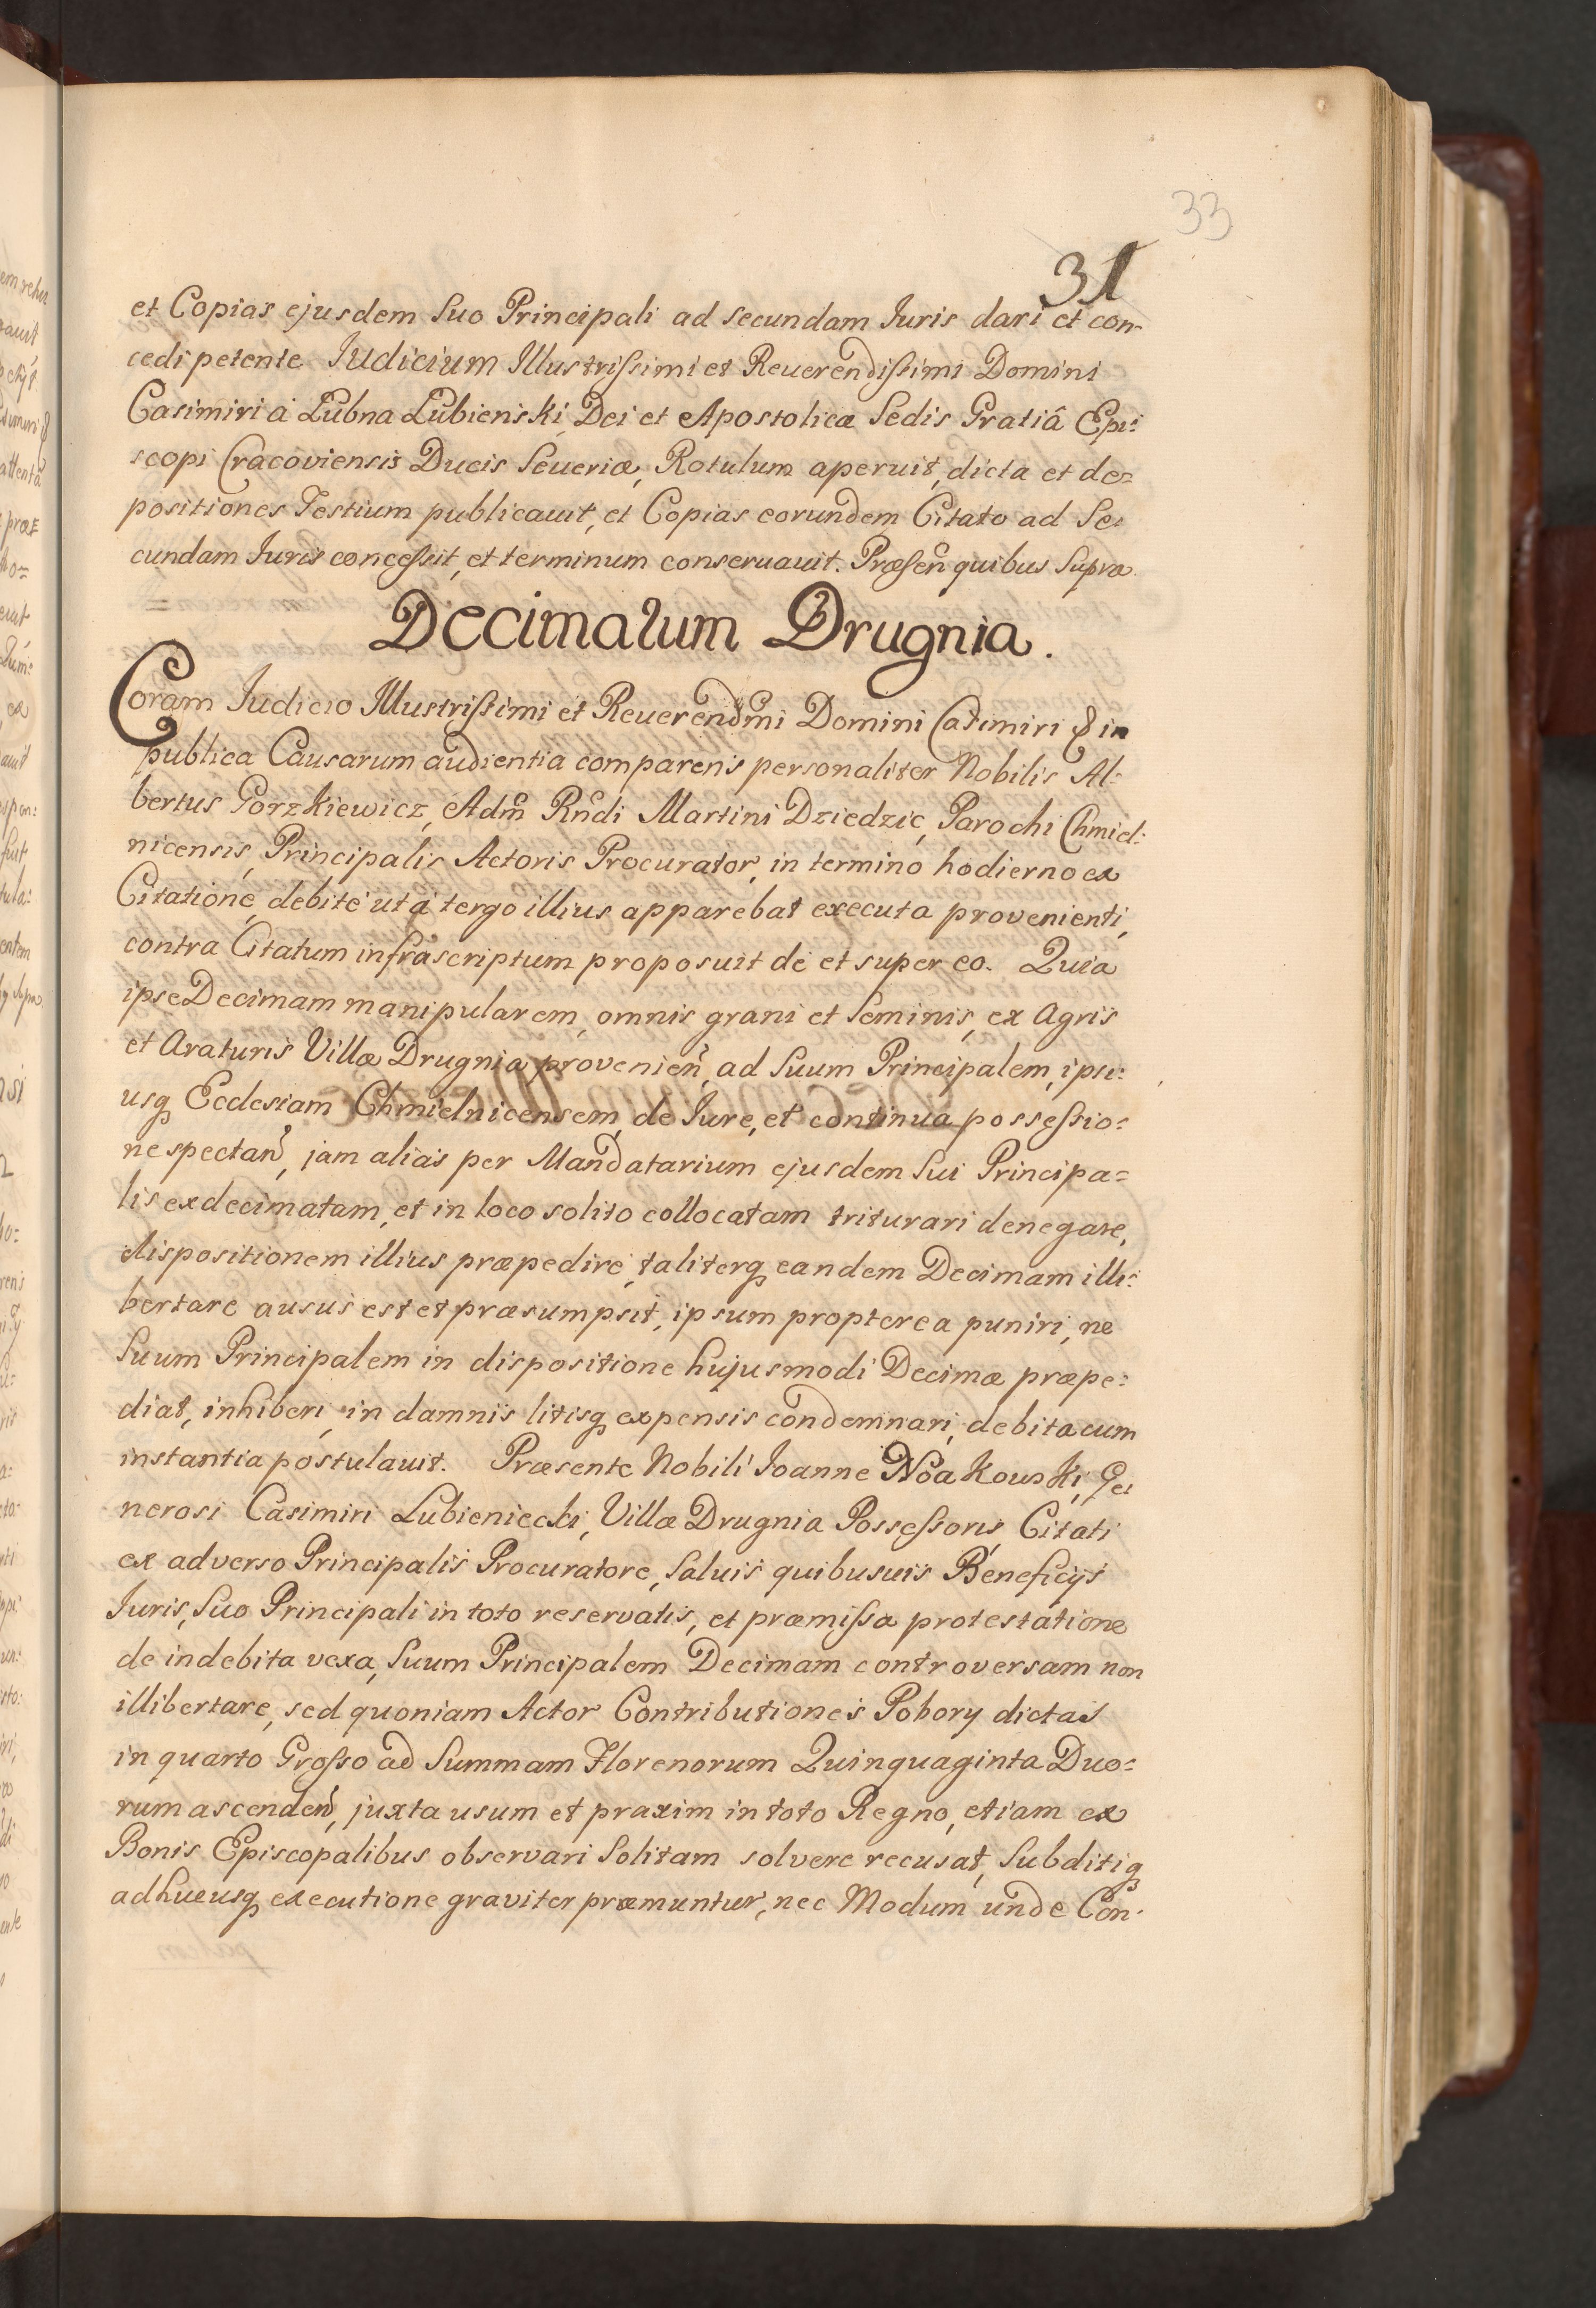 33
31
et Copias ejusdem Suo Principali ad secundam Iuris dari et con-
cedi petente Iudicium Illustrissimi et Reuerendissimi Domini
Casimiri á Łubna Łubienski, Dei et Apostolicæ Sedis Gratiâ Epi:
scopi Cracoviensis Ducis Seueriæ, Rotulum aperuit, dicta et de=
positiones Testium publicauit, et Copias eorundem Citato ad Se:
cundam Iuris concessit, et terminum conseruauit. Præsen̄ quibus Supra.
Decimalum Drugnia.
Coram Iudicio Illustrissimi et Reuerendm̄i Domini Casimiri & in
publica Causarum audientia comparens personaliter Nobilis Al:
bertus Gorzkiewicz, Adm̄ Rn̄di Martini Dziedzic, Parochi Chmiel:
nicensis, Principalis Actoris Procurator, in termino hodierno ex
Citatione, debite ut á tergo illius apparebat executa provenienti,
contra Citatum infrascriptum proposuit de et super eo. Quia
ipse Decimam manipularem, omnis grani et Seminis, ex Agris
et Araturis Villæ Drugnia provenien̄, ad Suum Principalem, ipsi:
usq Ecclesiam Chmielnicensem, de Iure, et continua possessio:
ne spectan̄, jam alias per Mandatarium ejusdem Sui Principa=
lis exdecimatam, et in loco solito collocatam triturari denegare,
dispositionem illius præpedire, taliterq eandem Decimam illi:
bertare ausus est et præsumpsit, ipsum propterea puniri, ne
Suum Principalem in dispositione hujusmodi Decimæ præpe:
diat, inhiberi, in damnis litisq expensis condemnari, debita cum
instantia postulauit. Præsente Nobili Ioanne Noakowski, Ge:
nerosi Casimiri Lubieniecki, Villæ Drugnia Possessoris Citati
ex adverso Principalis Procuratore, Saluis quibusuis Beneficijs
Iuris, Suo Principali in toto reservatis, et præmissa protestatione
de indebita vexa, Suum Principalem Decimam controversam non
illibertare, sed quoniam Actor Contributiones Pobory dictas
in quarto Grosso ad Summam Florenorum Quinquaginta Duo:
rum ascenden̄, juxta usum et praxim in toto Regno, etiam ex
Bonis Episcopalibus observari Solitam solvere recusat, Subditiq
adhucusq executione graviter præmuntur, nec Modum unde Con: